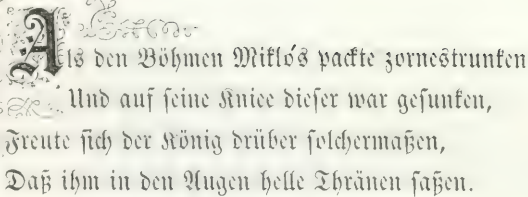 Als den Böhmen Miklós packte zornestrunken
Und auf seine Kniee dieser war gesunken,
Freute sich der König drüber solchermaßen,
Daß ihm in den Augen helle Thränen saßen.